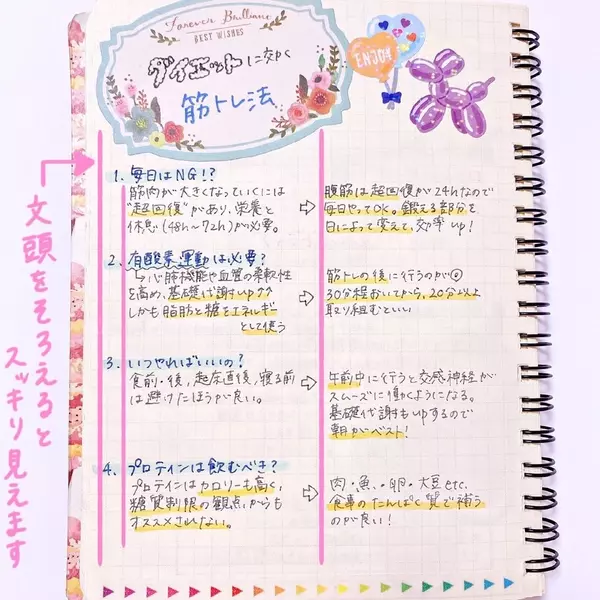 Forever Brilliant
BEST WISHES
ダイエットに効く
筋トレ法
ENJOY
文頭をそろえると
スッキリ見えます
1. 毎日はNG!?
筋肉が大きくなっていくには
"超回復"があり、栄養と
休息(48h〜72h)が必要。
⇨ 腹筋は超回復が24hなので
毎日やってOK。鍛える部分を
日によって変えて、効率up!
2. 有酸素運動は必要?
↳心肺機能や血管の柔軟性
を高め、基礎代謝up↑↑
しかも脂肪と糖をエネルギー
として使う
⇨ 筋トレの後に行うのが◎
30分程おいてから、20分以上
取り組むといい
3. いつやればいいの?
食前・後、起床直後、寝る前
は避けたほうが良い。
⇨ 午前中に行うと交感神経が
スムーズに働くようになる。
基礎代謝もupするので
朝がベスト!
4. プロテインは飲むべき?
プロテインはカロリーも高く、
糖質制限の観点からも
オススメされない。
⇨ 肉・魚・卵・大豆etc.
食事のたんぱく質で補う
のが良い!